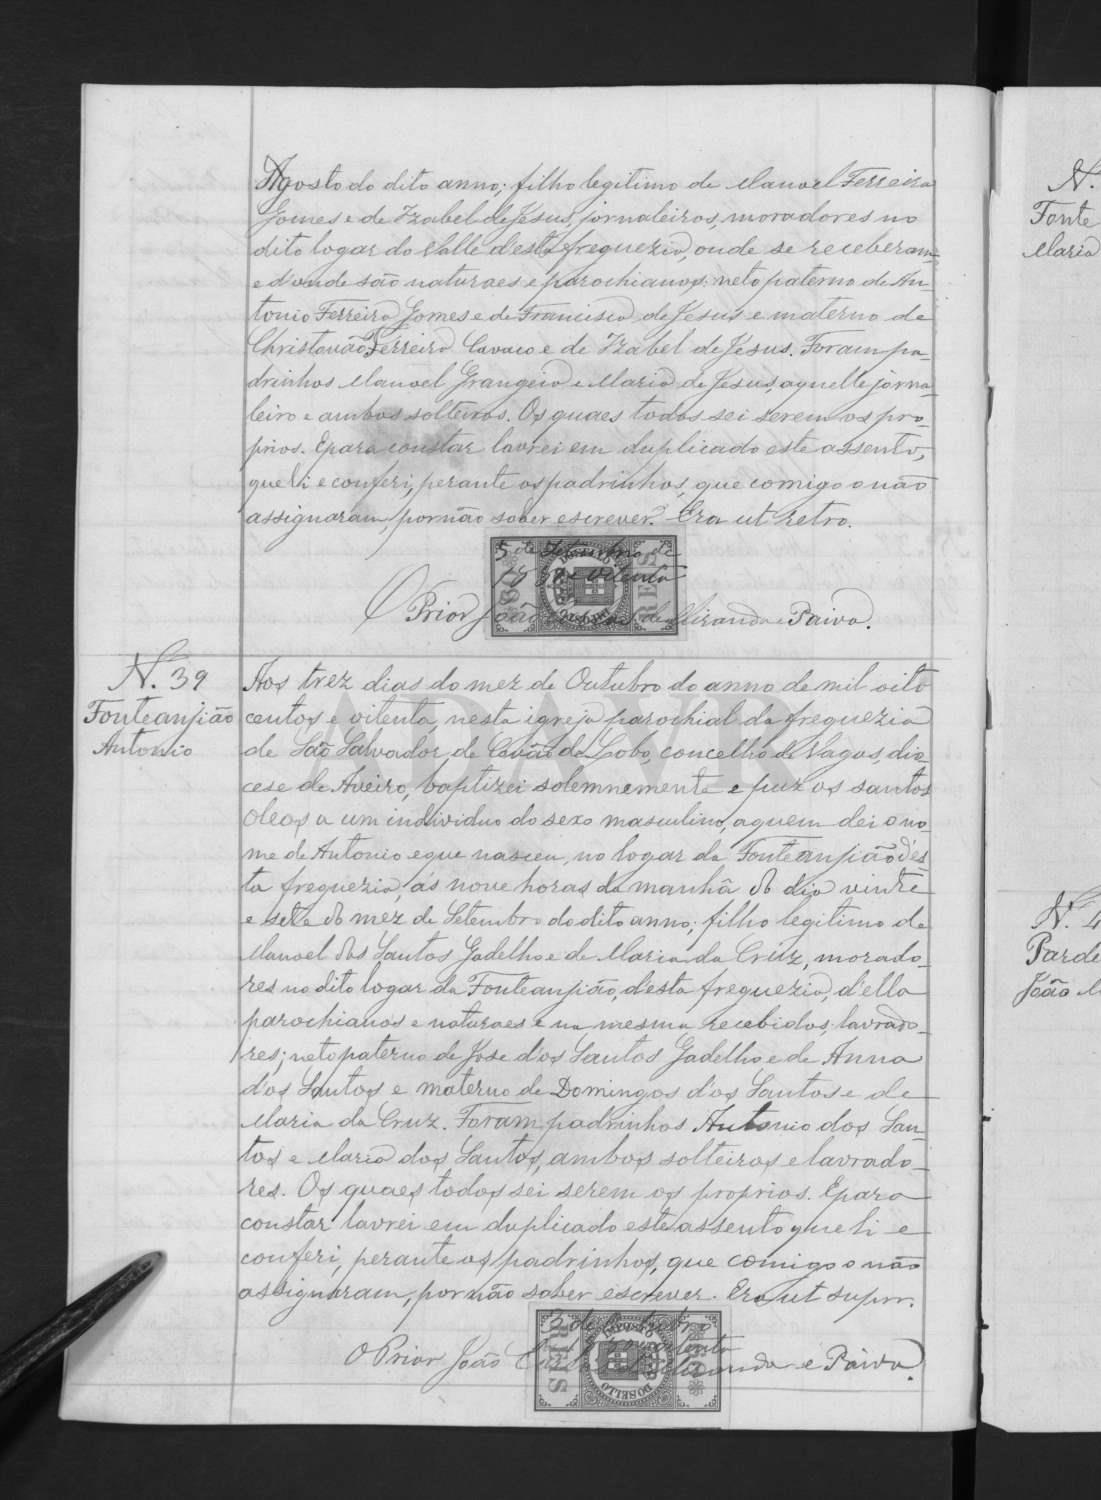 Agosto do dito anno; filho legitimo de Manoel Ferreira
Gomes e de Izabel de Jesus, jornaleiros, moradores no
dito logar do Valle d'esta freguezia, onde se receberam
e d'onde são naturaes e parochianos; neto paterno de An-
tonio Ferreira Gomes e de Francisca de Jesus e materno de
Christovão Ferreira Cavaco e de Izabel de Jesus. Foram pa-
drinhos Manoel Grangeia e Maria de Jesus, aquelle jorna-
leiro e ambos solteiros. Os quaes todos sei serem os pro-
prios. E para constar lavrei em duplicado este assento,
que li e conferi, perante os padrinhos, que comigo o não
assignaram, por não saber escrever. Era ut retro.
5 de Setembro de
O Prior João de Miranda e Paiva.
N. 39
Fonteanjião
Antonio
Aos trez dias do mez de Outubro do anno de mil oito
centos e oitenta, nesta igreja parochial da freguezia
de São Salvador, de Covão do Lobo, concelho de Vagos, dio-
cese de Aveiro, baptizei solemnemente e puz os santos
oleos a um individuo do sexo masculino, a quem dei o no-
me de Antonio e que nasceu, no logar da Fonteanjião d'es-
ta freguezia, ás nove horas da manhã do dia vinte
e sete do mez de Setembro do dito anno; filho legitimo de
Manoel dos Santos Gadelho e de Maria da Cruz, morado-
res no dito logar da Fonteanjião, d'esta freguezia, d'ella
parochianos e naturaes e na mesma recebidos, lavrado-
res; neto paterno de Jose dos Santos Gadelho e de Anna
dos Santos e materno de Domingos dos Santos e de
Maria da Cruz. Foram padrinhos Antonio dos San-
tos e Maria dos Santos, ambos solteiros e lavrado-
res. Os quaes todos sei serem os proprios. E para
constar lavrei em duplicado este assento que li e
conferi, perante os padrinhos, que comigo o não
assignaram, por não saber escrever. Era ut supra.
3 de Outubro
O Prior João de Miranda e Paiva.
N.
Fonte
Maria
N. 4
Parde
João